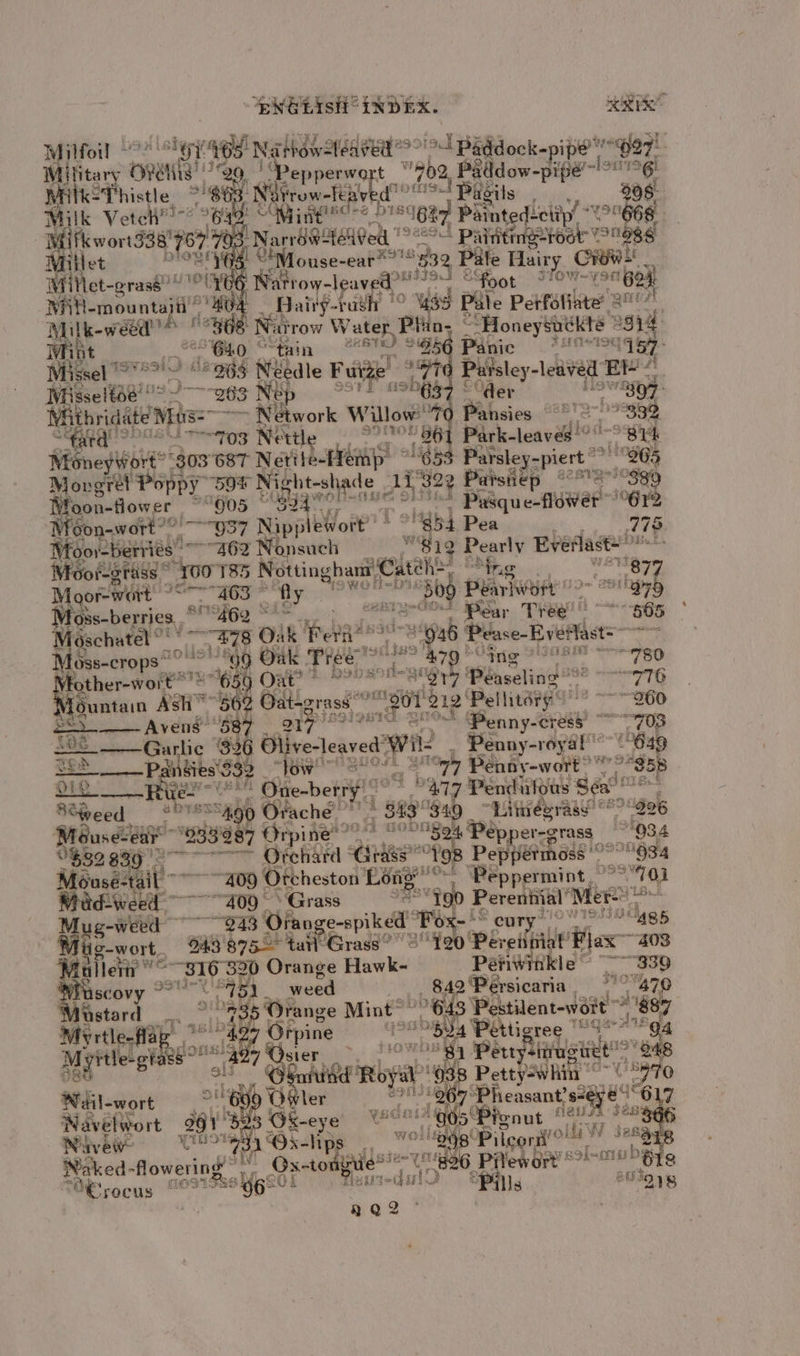 ENGLISH INDEX. XXIX
Milfoil 165
Military Orchis 29
Milk-Thistle
Milk Vetch 642
Milkwort 338 767 793
Millet
Millet-grass 166
Mill-mountain 404
Milk-weed 368
Mint 640
Missel 263
Misseltoe 263
Mithridate Mus-
tard 703
Moneywort 303 687
Mongrel Poppy 594
Moon-flower 905
Moon-wort 937
Moor-berries 462
Moor-grass 100 185
Moor-wort 463
Moss-berries 462
Moschatel 478
Moss-crops 99
Mother-wort 659
Mountain Ash 562
—— Avens 587
—— Garlic
—— Pansies 332
—— Rue-
weed 490
Mouse-ear 933 287
832 839
Mouse-tail 409
Mud-weed 409
Mug-weed 243
Mug-wort 243 875
Mullein 316 320
Muscovy 751
Mustard 735
Myrtle-flag 427
Myrtle-grass 427
Nail-wort 699
Navelwort 291 523
Navew 731
Naked-flowering
Crocus 96
Narrow-leaved
Pepperwort 702
Narrow-leaved
Mint 627
Narrow-leaved
Mouse-ear 832
Narrow-leaved
Hairy-rush 433
Narrow Water Plan-
tain 256
Needle Furze 770
Nep 637
Network Willow 70
Nettle 261
Nettle-Hemp 653
Night-shade 11 322
324
Nipplewort 854
Nonsuch 812
Nottingham Catch-
fly 509
Oak Fern 946
Oak Tree 479
Oat 217
Oat-grass 201 212
217
Olive-leaved Wil-
low 77
One-berry 477
Orache 343 349
Orpine 524
Orchard Grass 198
Orcheston Long
Grass 190
Orange-spiked Fox-
tail Grass 120
Orange Hawk-
weed 842
Orange Mint 643
Orpine 524
Osier 81
Osmund Royal 938
Osler 267
Ox-eye 905
Ox-lips 298
Ox-tongue 826
Paddock-pipe 927
Paddow-pipe 6
Pagils 298
Painted-cup 668
Painting-root 288
Pale Hairy Crow-
foot 624
Pale Perfoliate
Honeysuckle 314
Panic 157
Parsley-leaved El-
der 397
Pansies 332
Park-leaves 814
Parsley-piert 265
Parsnep 389
Pasque-flower 612
Pea 775
Pearly Everlast-
ing 877
Pearlwort 279
Pear Tree 565
Pease-Everlast-
ing 780
Peaseling 776
Pellitory 260
Penny-cress 703
Penny-royal 649
Penny-wort 358
Pendulous Sea
Limegrass 226
Pepper-grass 934
Peppermoss 934
Peppermint 701
Perennial Mer-
cury 485
Perennial Flax 403
Periwinkle 339
Persicaria 470
Pestilent-wort 887
Pettigree 94
Petty-muguet 248
Petty-whin 770
Pheasant's-eye 617
Pignut 366
Pilcorn 218
Pilewort 618
Pills 218
a Q 2